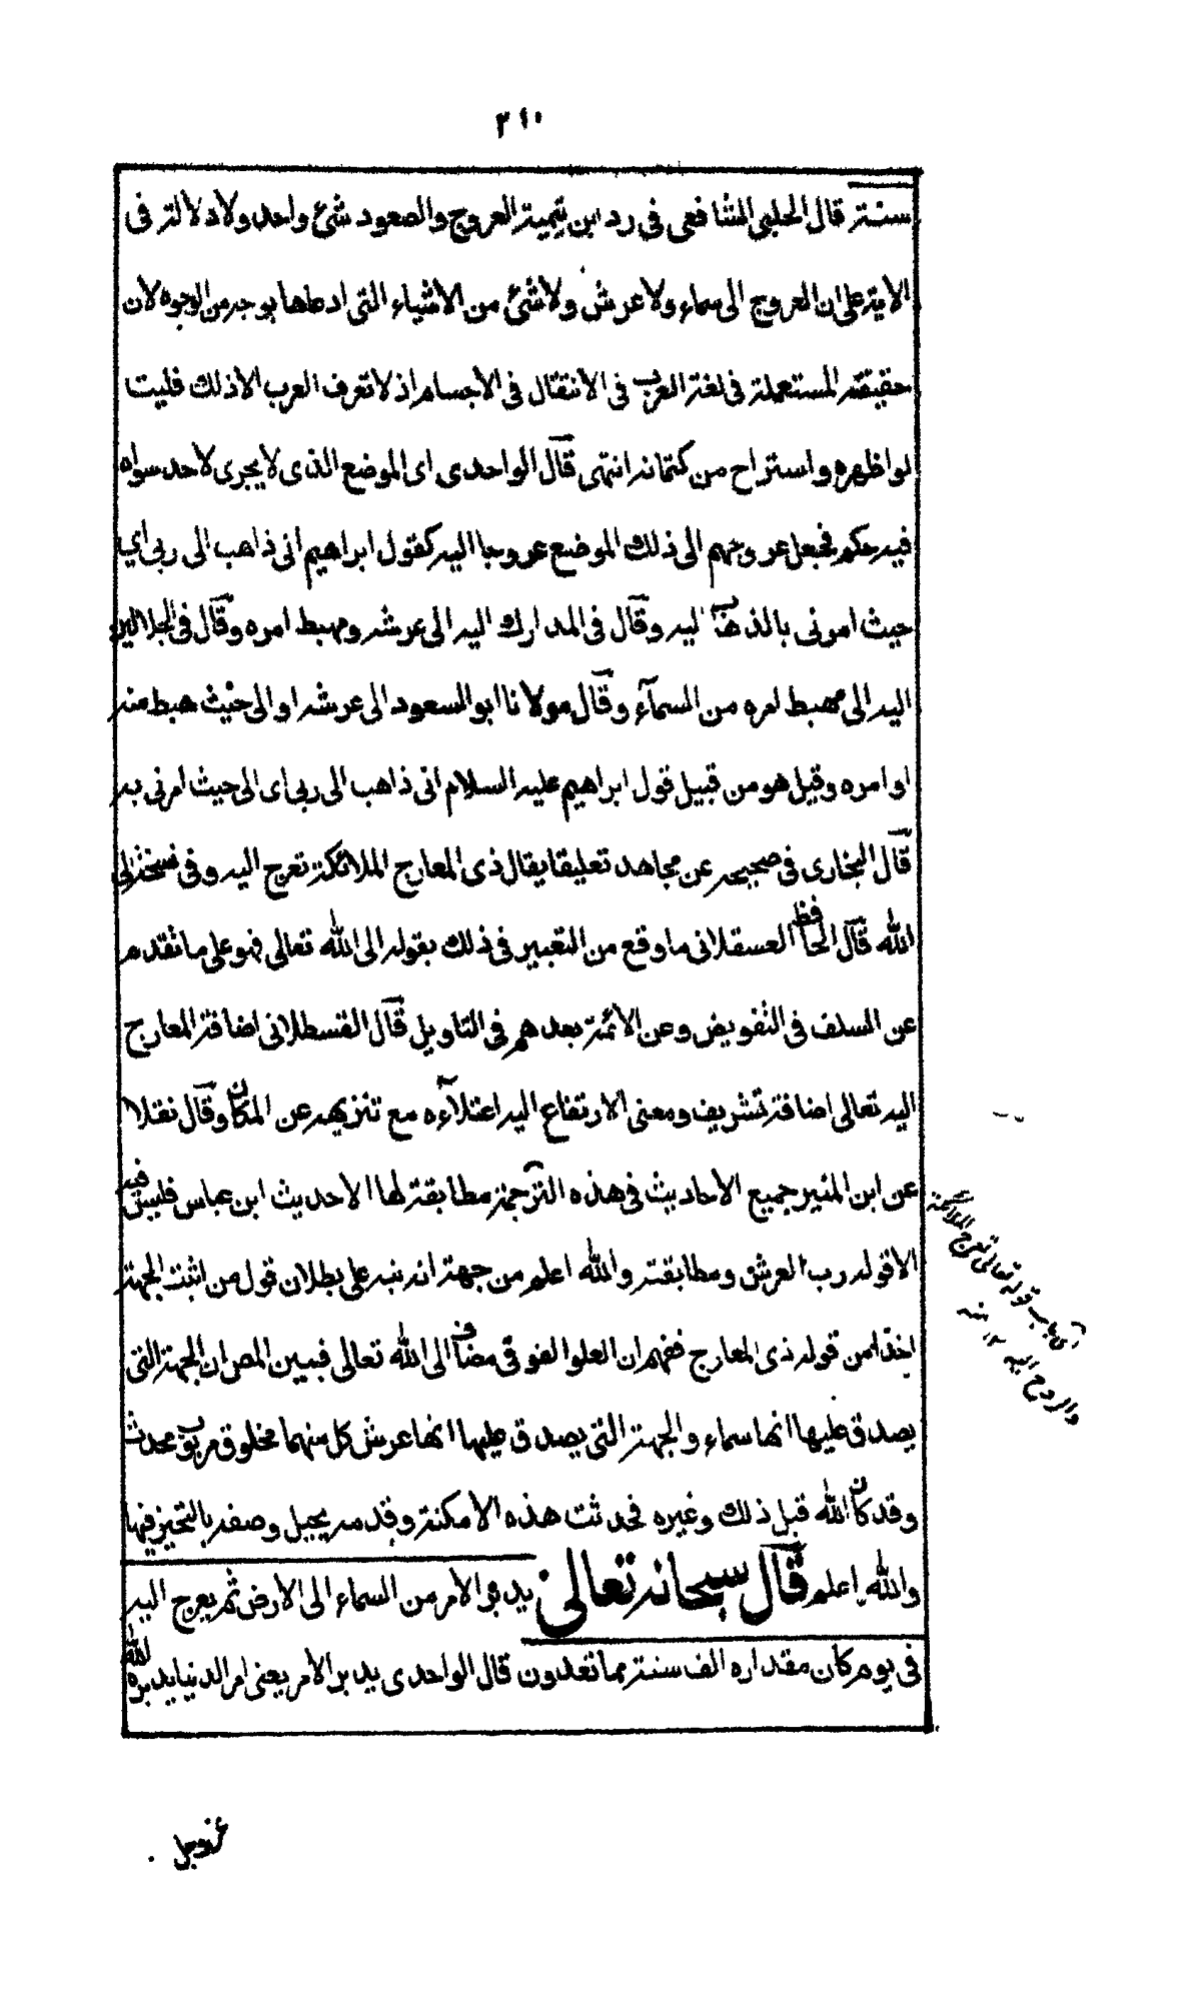 ٣٤٠
سنة قال الحلبي الشافعي في رد ابن تيمية العروج والصعود شئ واحد ولا دلالة في
الاية على ان العروج الى سماء ولا عرش ولا شئ من الاشياء التي ادعاها بوجه من الوجوه لان
حقيقته المستعملة في لغة العرب في الانتقال في الاجسام اذ لا تعرف العرب الا ذلك فليت
لو اظهره واستراح من كتمانه انتهى قال الواحدى اى الموضع الذى لا يجرى لاحد سواه
فيه حكم فجعل عروجهم الى ذلك الموضع عروجا اليه كقول ابراهيم انى ذاهب الى ربى اي
حيث امرنى بالذهاب اليه وقال فى المدارك اليه الى عرشه ومهبط امره وقال فى الجلالين
اليه الى مهبط امره من السمآء وقال مولانا ابو السعود الى عرشه او الى حيث هبط منه
او امره وقيل هو من قبيل قول ابراهيم عليه السلام انى ذاهب الى ربى اى الى حيث امرنى به
قال البخارى فى صحيحه عن مجاهد تعليقا يقال ذى المعارج الملائكة تعرج اليه وفى نسخة الى
الله قال الحافظ العسقلانى ما وقع من التعبير فى ذلك بقوله الى الله تعالى فهو على ما تقدم
عن السلف فى التفويض وعن الائمة بعدهم فى التاويل قال القسطلانى اضافة المعارج
اليه تعالى اضافة تشريف ومعنى الارتفاع اليه اعتلاءه مع تنزيهه عن المكان وقال نقلا
عن ابن المنير جميع الاحاديث فى هذه الترجمة مطابقة لها الا حديث ابن عباس فليس فيه
الا قوله رب العرش ومطابقته والله اعلم من جهة انه نبه على بطلان قول من اثبت الجهة
اخذا من قوله ذى المعارج ففهم ان العلو الفوقى مضاف الى الله تعالى فبين المص ان الجهة التى
يصدق عليها انها سماء والجهة التى يصدق عليها انها عرش كل منهما مخلوق مربوب محدث
وقد كان الله قبل ذلك وغيره فحدثت هذه الامكنة وقدمه يحيل وصفه بالتحيز فيها
والله اعلم قال سبحانه تعالى يدبر الامر من السماء الى الارض ثم يعرج اليه
فى يوم كان مقداره الف سنة مما تعدون قال الواحدى يدبر الامر يعنى امر الدنيا يدبره الله
عزوجل
اى باب قوله تعالى تعرج الملائكة
والروح اليه ١٢ منه